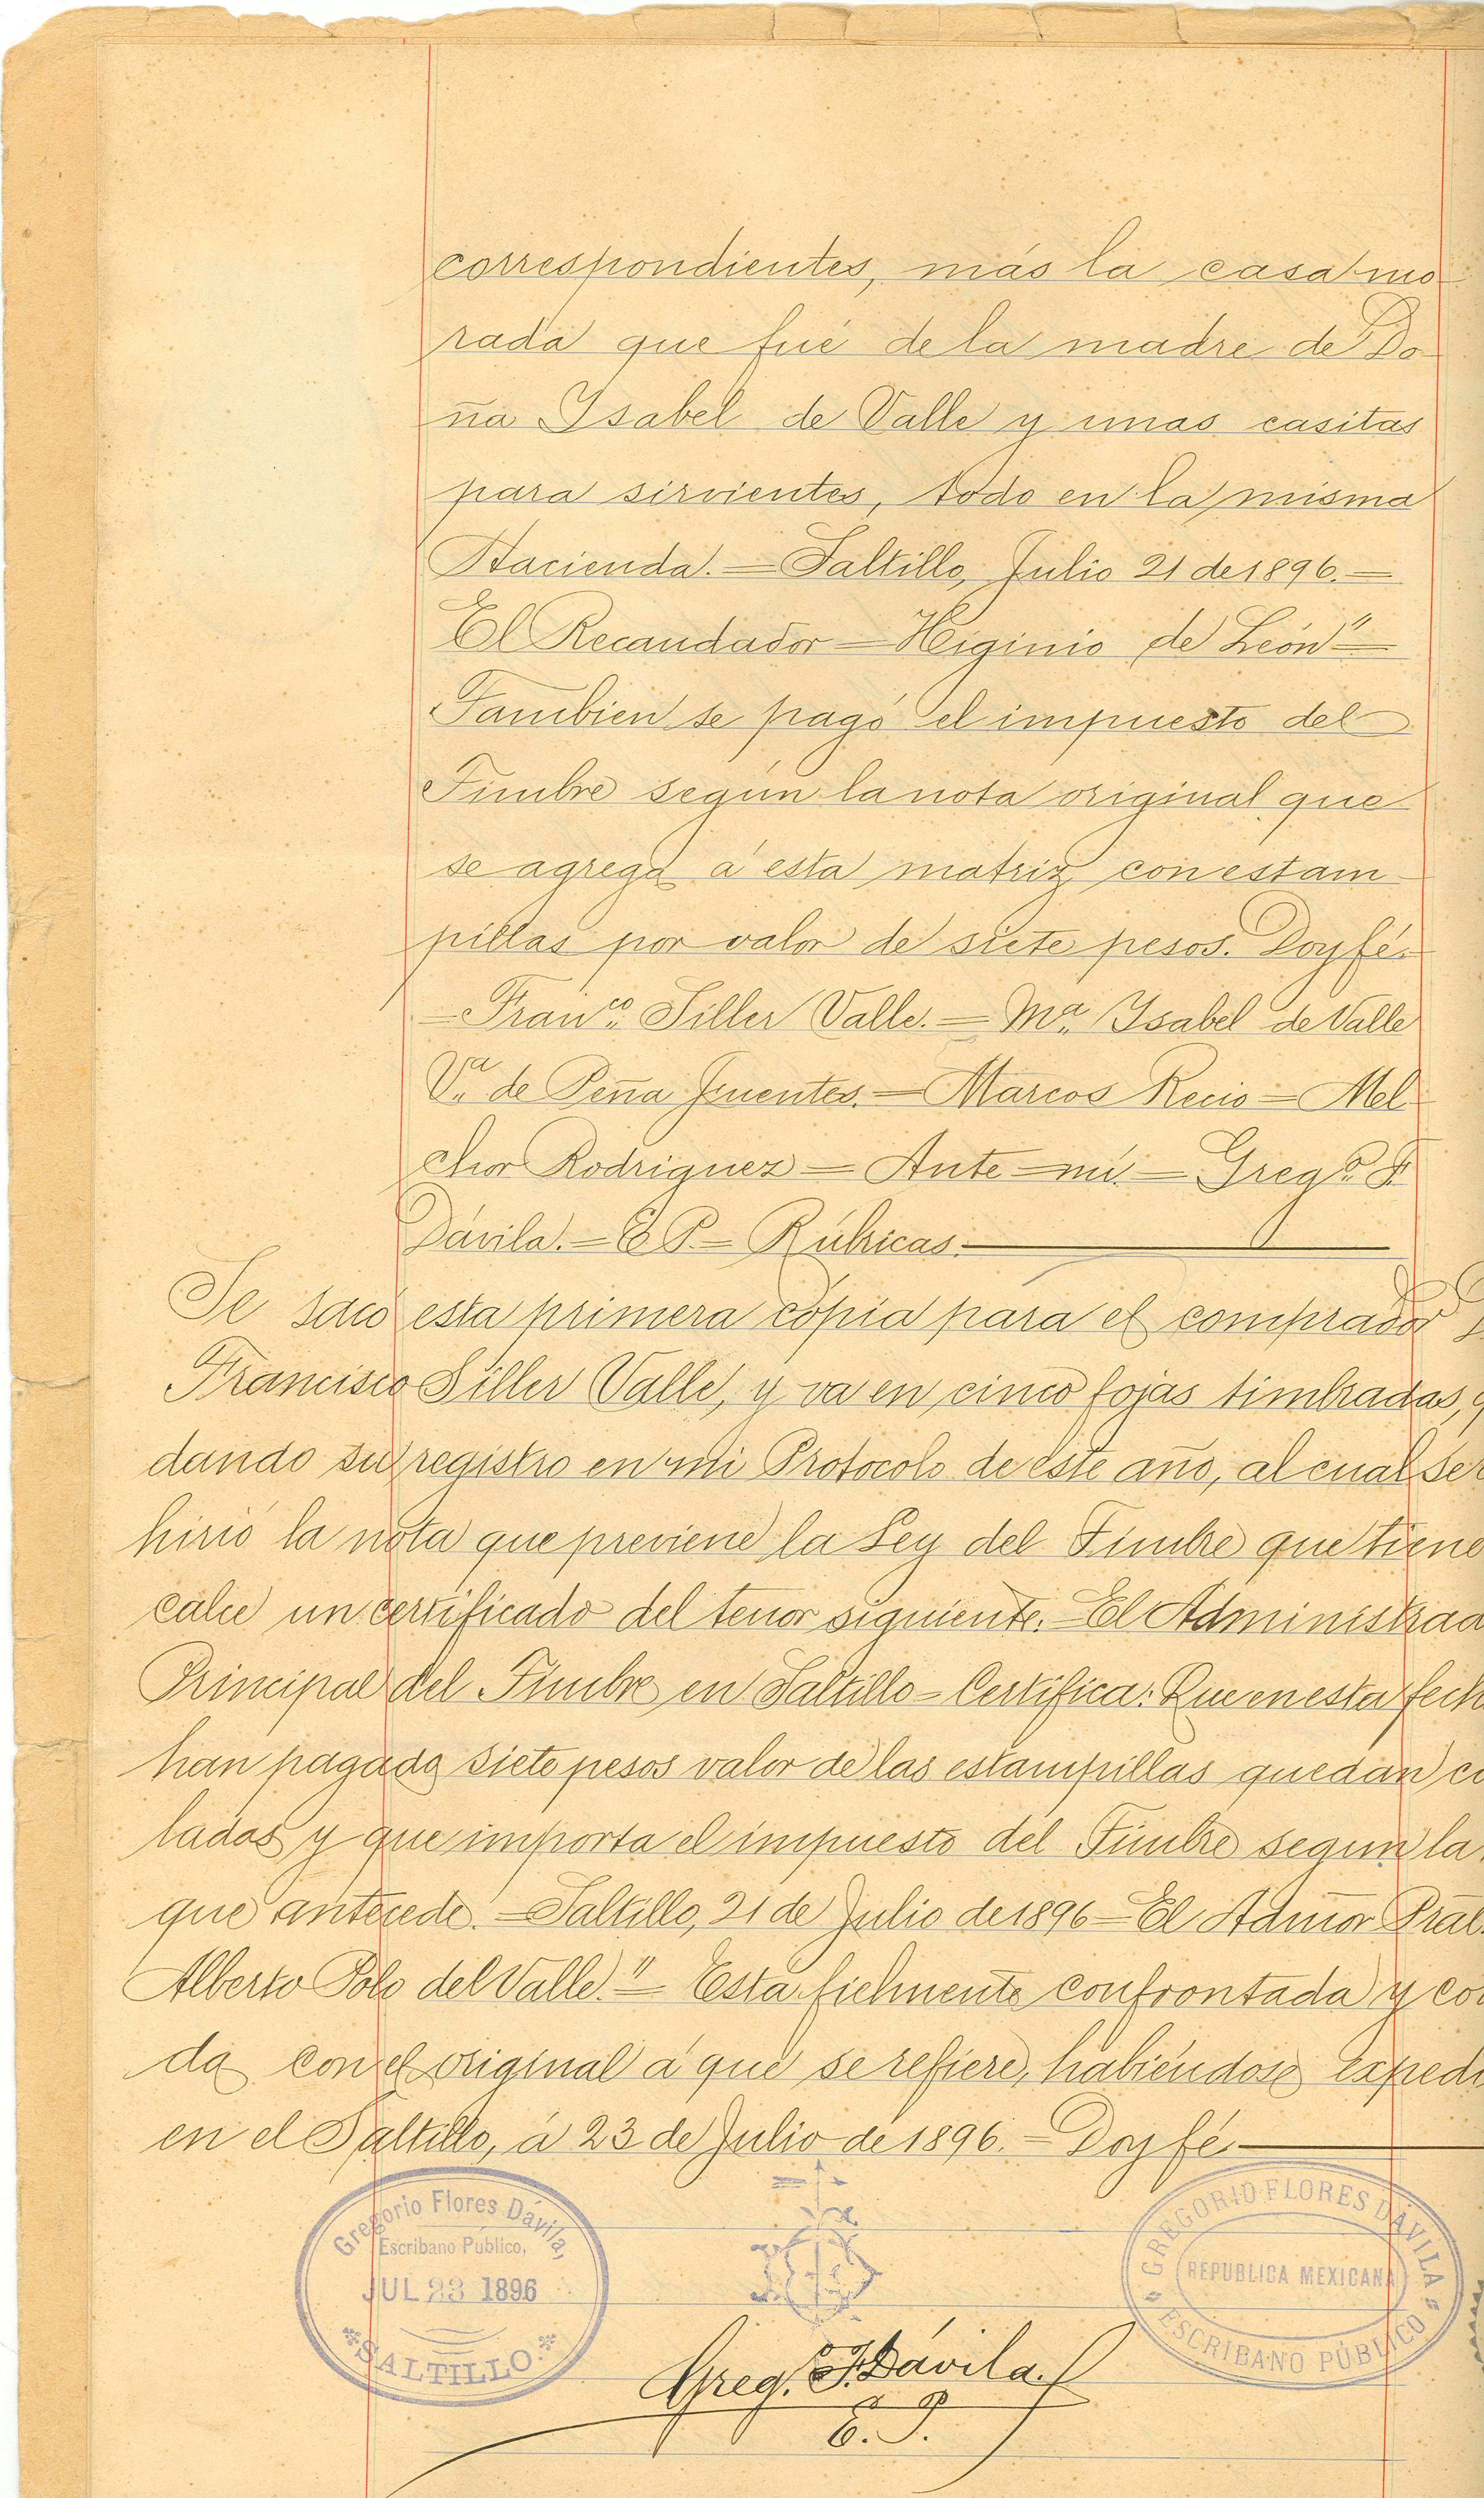 correspondientes, más la casa mo
rada que fué de la madre de Do
ña Ysabel de Valle y unas casitas
para sirvientes, todo en la misma
Hacienda. = Saltillo, Julio 21 de 1896. =
El Recaudador = Higinio de León" =
Tambien se pagó el impuesto del
Timbre según la nota original que
se agrega á esta matriz con estam
pillas por valor de siete pesos. Doy fé.
= Franco. Siller Valle. = Ma. Ysabel de Valle
Va. de Peña Fuentes. = Marcos Recio = Mel
chor Rodriguez = Ante mí. = Grego. F.
Dávila. = E P. = Rúbricas.
Se sacó esta primera cópia para el comprador
Francisco Siller Valle, y va en cinco fojas timbradas, q
dando su registro en mi Protocolo de este año, al cual se
hirió la nota que previene la Ley del Timbre que tiene
calce un certificado del tenor siguiente. = El Administrad
Principal del Timbre en Saltillo = Certifica: Que en esta fech
han pagado siete pesos valor de las estampillas quedan
ladas y que importa el impuesto del Timbre segun la
que antecede. = Saltillo, 21 de Julio de 1896 = El Admor Pral.
Alberto Polo del Valle." = Esta fielmente confrontada y co
da con el original á que se refiere, habiéndose expedi
en el Saltillo, á 23 de Julio de 1896. = Doy fé.
Gregorio Flores Dávila,
Escribano Público,
JUL 23 1896
SALTILLO.
GREGORIO FLORES DÁVILA
REPUBLICA MEXICANA
ESCRIBANO PÚBLICO
Grego. F. Dávila.
E. P.